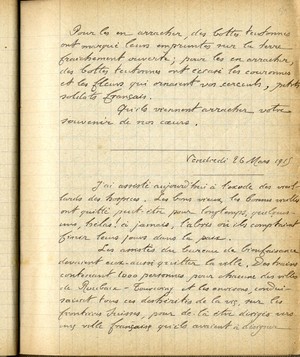 Pour les en arracher, des bottes teutonnes
ont marqué leurs empreintes sur la terre
fraîchement ouverte; pour les en arracher,
des bottes teutonnes ont écrasé les couronnes
et les fleurs qui ornaient vos cercueils, petits
soldats français.
Qu'ils viennent arracher votre
souvenir de nos cœurs.
Vendredi 26 Mars 1915
J'ai assisté aujourd'hui à l'exode des vieil-
lards des hospices. Les bons vieux, les bonnes vieilles
ont quitté peut-être pour longtemps, quelques-
uns, hélas! à jamais, l'abri où ils comptaient
finir leurs jours dans la paix.
Les assistés du bureau de bienfaisance
devaient eux aussi quitter la ville. Des trains
contenant 1000 personnes pour chacune des villes
de Roubaix-Tourcoing et les environs, condui-
saient tous ces déshérités de la vie, sur les
frontières Suisses, pour de là être dirigés vers
une ville française qu'ils avaient à désigner